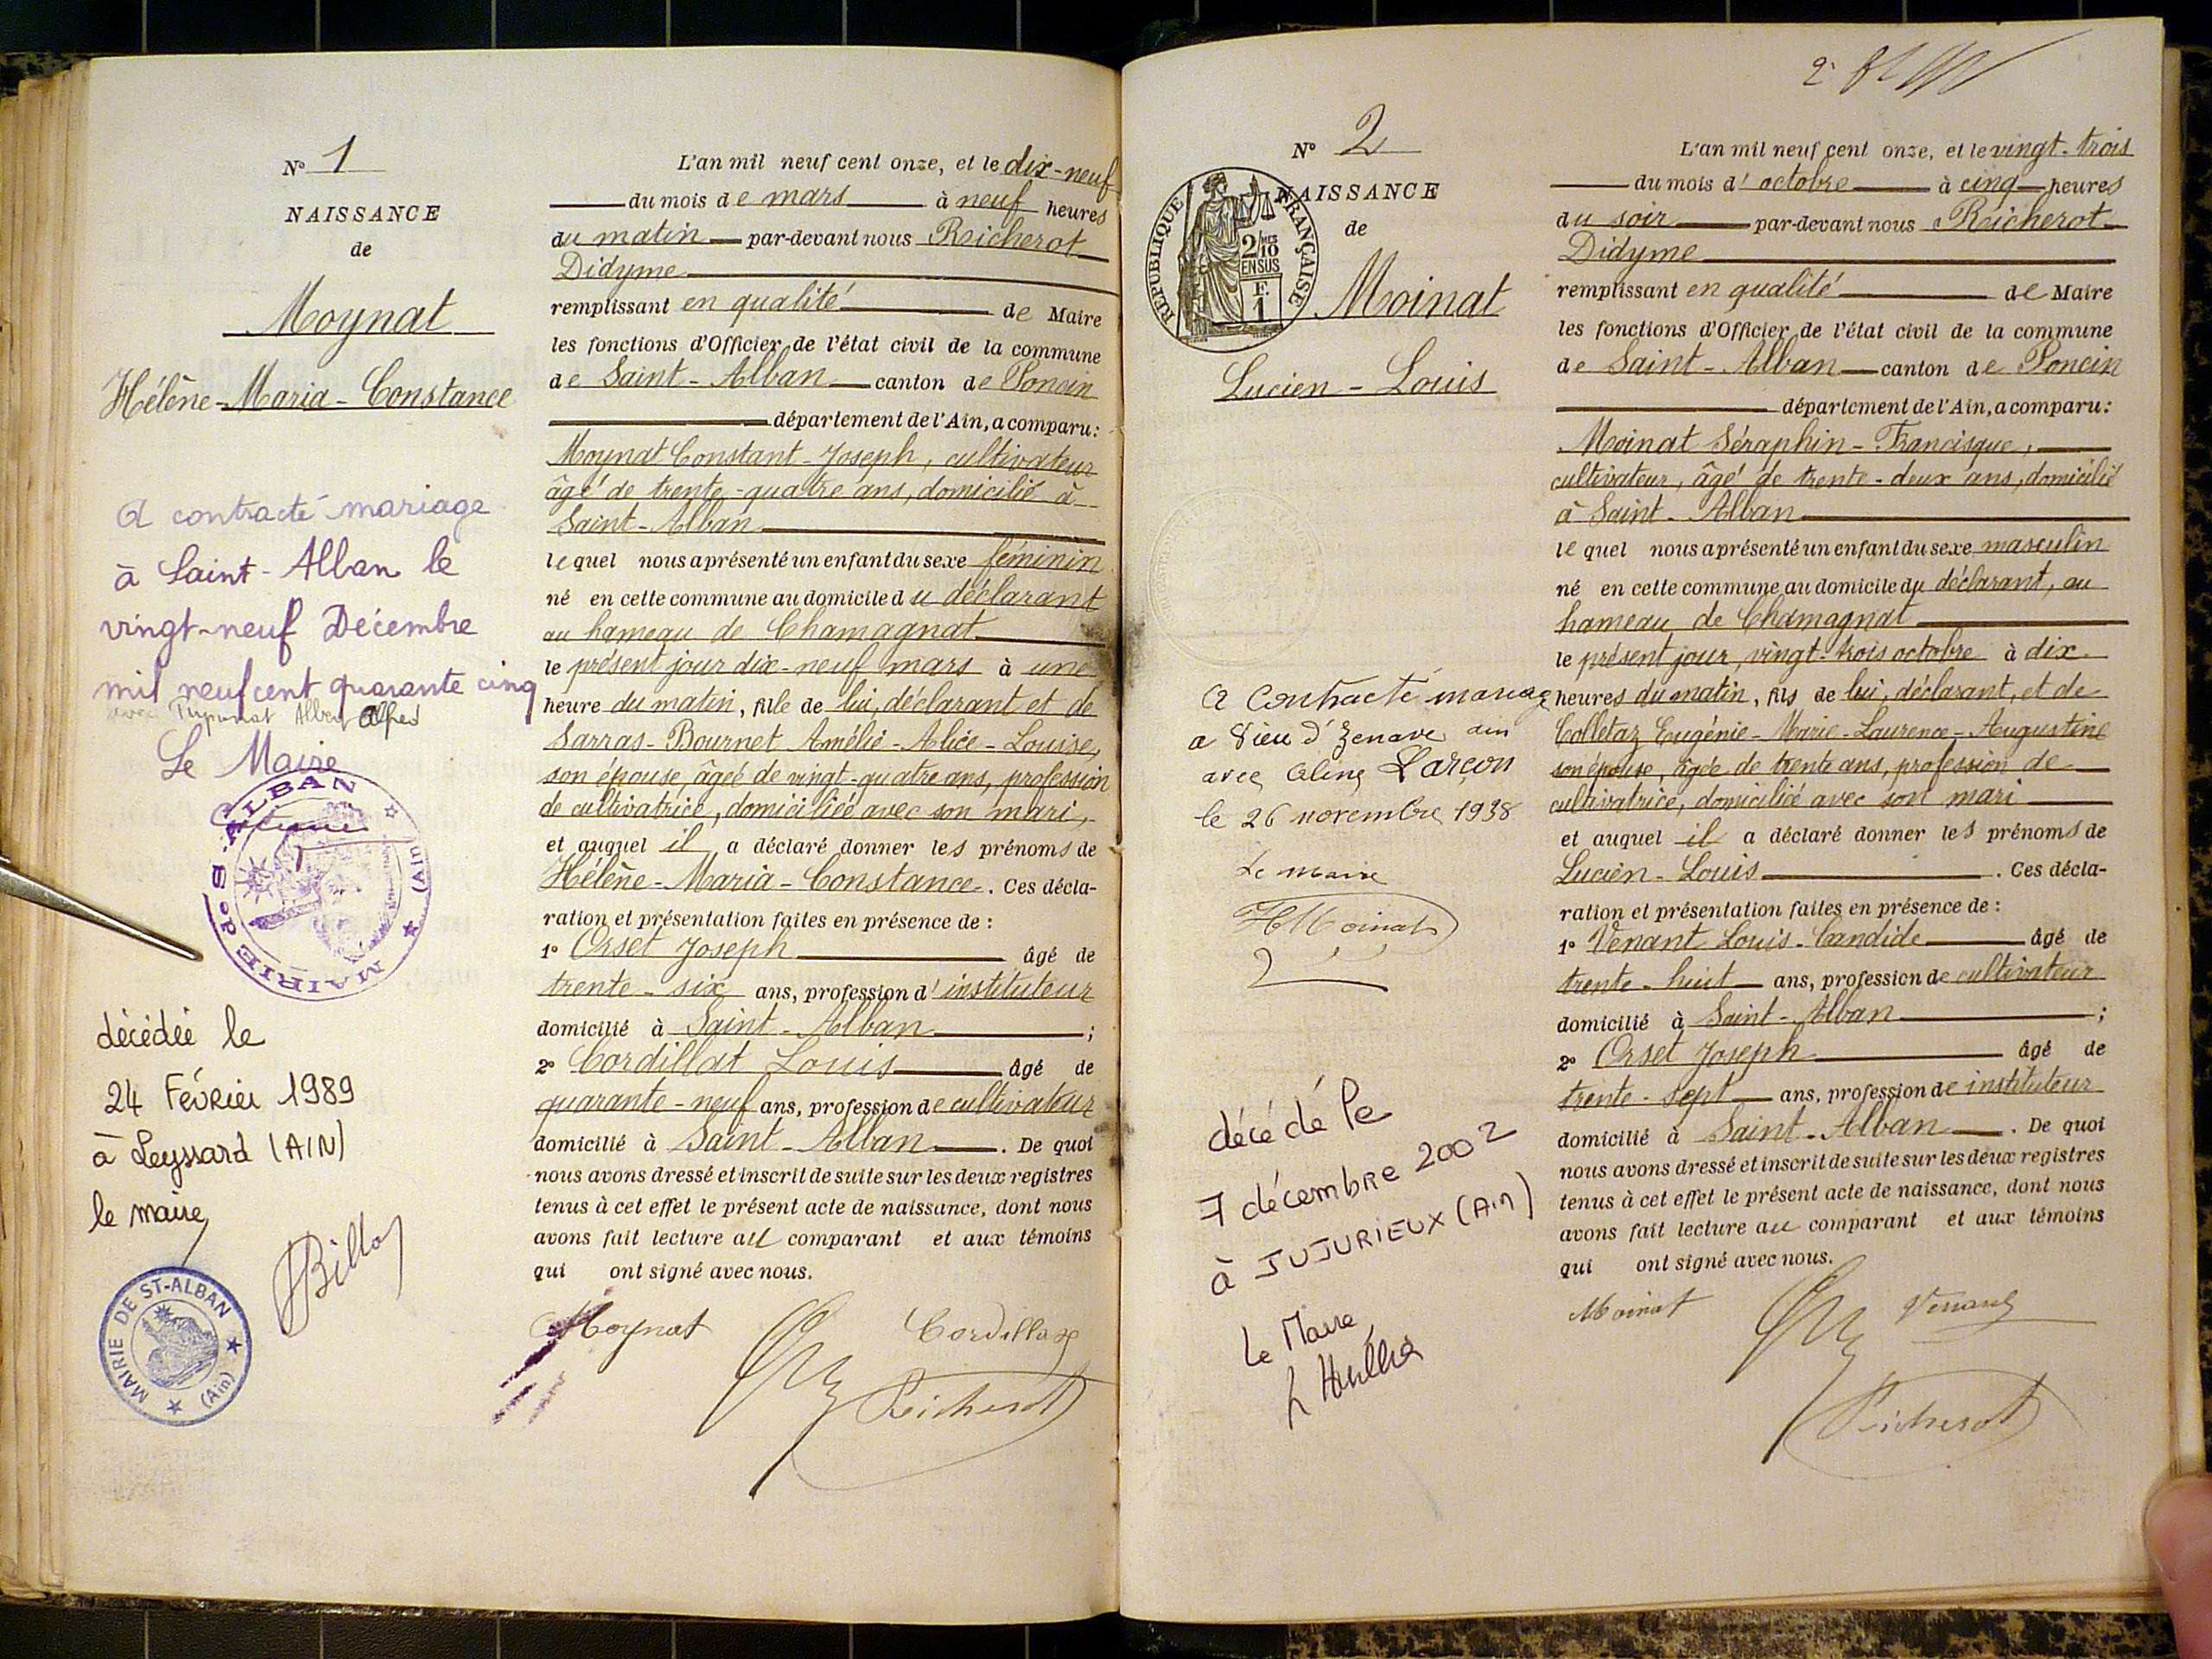 N° 1
NAISSANCE
de
Moynat
Hélène-Maria-Constance
A contracté mariage
à Saint-Alban le
vingt-neuf Décembre
mil neuf cent quarante cinq
avec Albert Alfred
Le Maire
MAIRIE de St ALBAN (Ain)
décédée le
24 FévRieR 1989
à Leyssard (AIN)
le maire,
MAIRIE DE ST-ALBAN (Ain)
L'an mil neuf cent onze, et le dix-neuf
du mois de mars à neuf heures
du matin par-devant nous Richerot
Didyme
remplissant en qualité de Maire
les fonctions d'Officier de l'état civil de la commune
de Saint-Alban canton de Poncin
département de l'Ain, a comparu:
Moynat Constant-Joseph, cultivateur
âgé de trente-quatre ans, domicilié à
Saint-Alban
lequel nous a présenté un enfant du sexe féminin
né en cette commune au domicile du déclarant
au hameau de Chamagnat
le présent jour dix-neuf mars à une
heure du matin, fille de lui, déclarant et de
Sarras-Bournet Amélie-Alice-Louise,
son épouse, âgée de vingt-quatre ans, profession
de cultivatrice, domiciliée avec son mari,
et auquel il a déclaré donner les prénoms de
Hélène-Maria-Constance. Ces décla-
ration et présentation faites en présence de :
1° Orset Joseph âgé de
trente-six ans, profession d'instituteur
domicilié à Saint-Alban ;
2° Cordillat Louis âgé de
quarante-neuf ans, profession de cultivateur
domicilié à Saint-Alban. De quoi
nous avons dressé et inscrit de suite sur les deux registres
tenus à cet effet le présent acte de naissance, dont nous
avons fait lecture au comparant et aux témoins
qui ont signé avec nous.
Moynat Cordillat
Richerot
N° 2
NAISSANCE
de
RÉPUBLIQUE FRANÇAISE
2/10 MES
EN SUS
F.
1
Moinat
Lucien-Louis
A Contracté mariage
a Vieu d'Izenave ain
avec Céline Larçon
le 26 novembre 1938
Le maire
H Moinat
décédé le
7 décembre 2002
à JUJURIEUX (Ain)
Le Maire,
L'an mil neuf cent onze, et le vingt-trois
du mois d'octobre à cinq heures
du soir par-devant nous Richerot
Didyme
remplissant en qualité de Maire
les fonctions d'Officier de l'état civil de la commune
de Saint-Alban canton de Poncin
département de l'Ain, a comparu:
Moinat Séraphin-Francisque,
cultivateur, âgé de trente-deux ans, domicilié
à Saint-Alban
lequel nous a présenté un enfant du sexe masculin
né en cette commune au domicile du déclarant, au
hameau de Chamagnat
le présent jour, vingt-trois octobre à dix
heures du matin, fils de lui, déclarant, et de
Colletaz Eugénie-Marie-Laurence-Augustine
son épouse, âgée de trente ans, profession de
cultivatrice, domiciliée avec son mari
et auquel il a déclaré donner les prénoms de
Lucien-Louis. Ces décla-
ration et présentation faites en présence de :
1° Venant Louis-Candide âgé de
trente-huit ans, profession de cultivateur
domicilié à Saint-Alban ;
2° Orset Joseph âgé de
trente-sept ans, profession de instituteur
domicilié à Saint-Alban. De quoi
nous avons dressé et inscrit de suite sur les deux registres
tenus à cet effet le présent acte de naissance, dont nous
avons fait lecture au comparant et aux témoins
qui ont signé avec nous.
Moinat Venant
Richerot